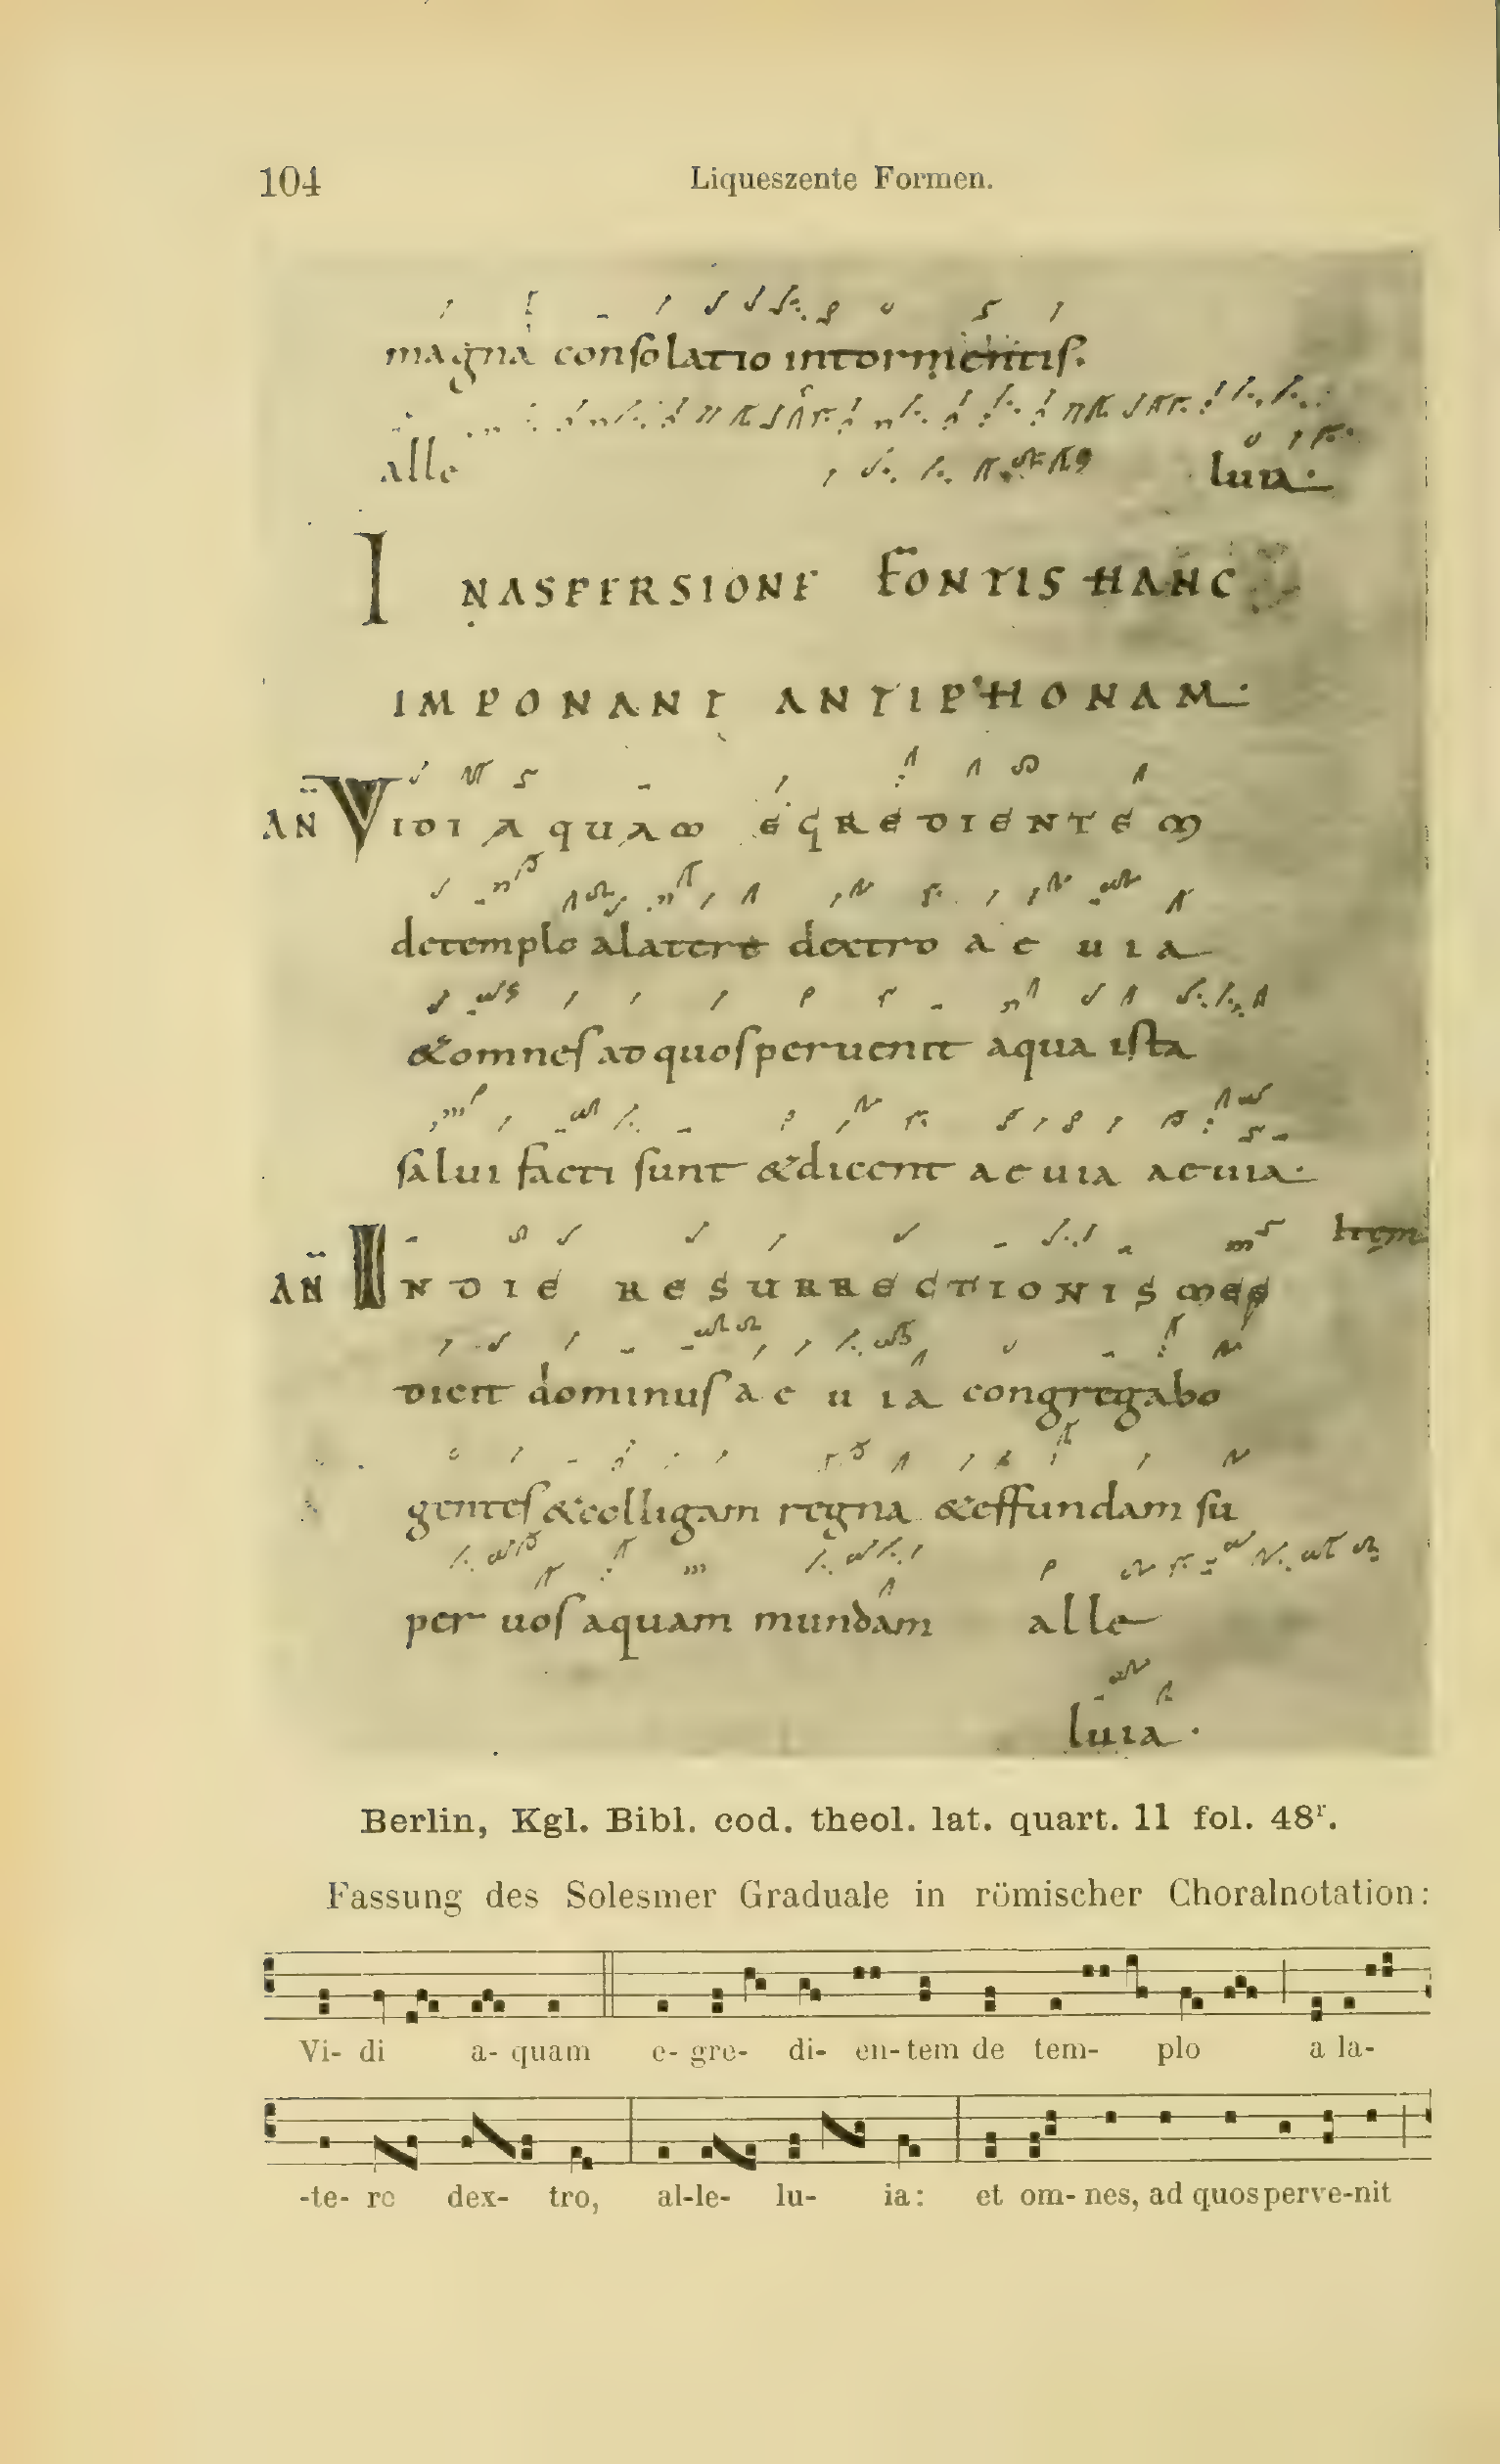 104
Liqueszente Formen.
magna conſolatio intormentiſ.
alle luia.
INASPERSIONE FONTIS HANC
IMPONANT ANTIPHONAM.
AÑ VIDI AQUAM EGREDIENTEM
detemplo alatere dextro a e u i a
&omneſ adquoſperuenit aqua iſta
ſalui facti ſunt &dicent a e uia aeuia.
Item
AÑ IN DIE RESURRECTIONIS MEE
dicit dominuſ a e u ia congregabo
genteſ &colligam regna &effundam ſu
per uoſ aquam mundam alle
luia.
Berlin, Kgl. Bibl. cod. theol. lat. quart. 11 fol. 48r.
Fassung des Solesmer Graduale in römischer Choralnotation:
Vi- di a- quam e- gre- di- en- tem de tem- plo a la-
-te- re dex- tro, al-le- lu- ia: et om- nes, ad quos perve-nit